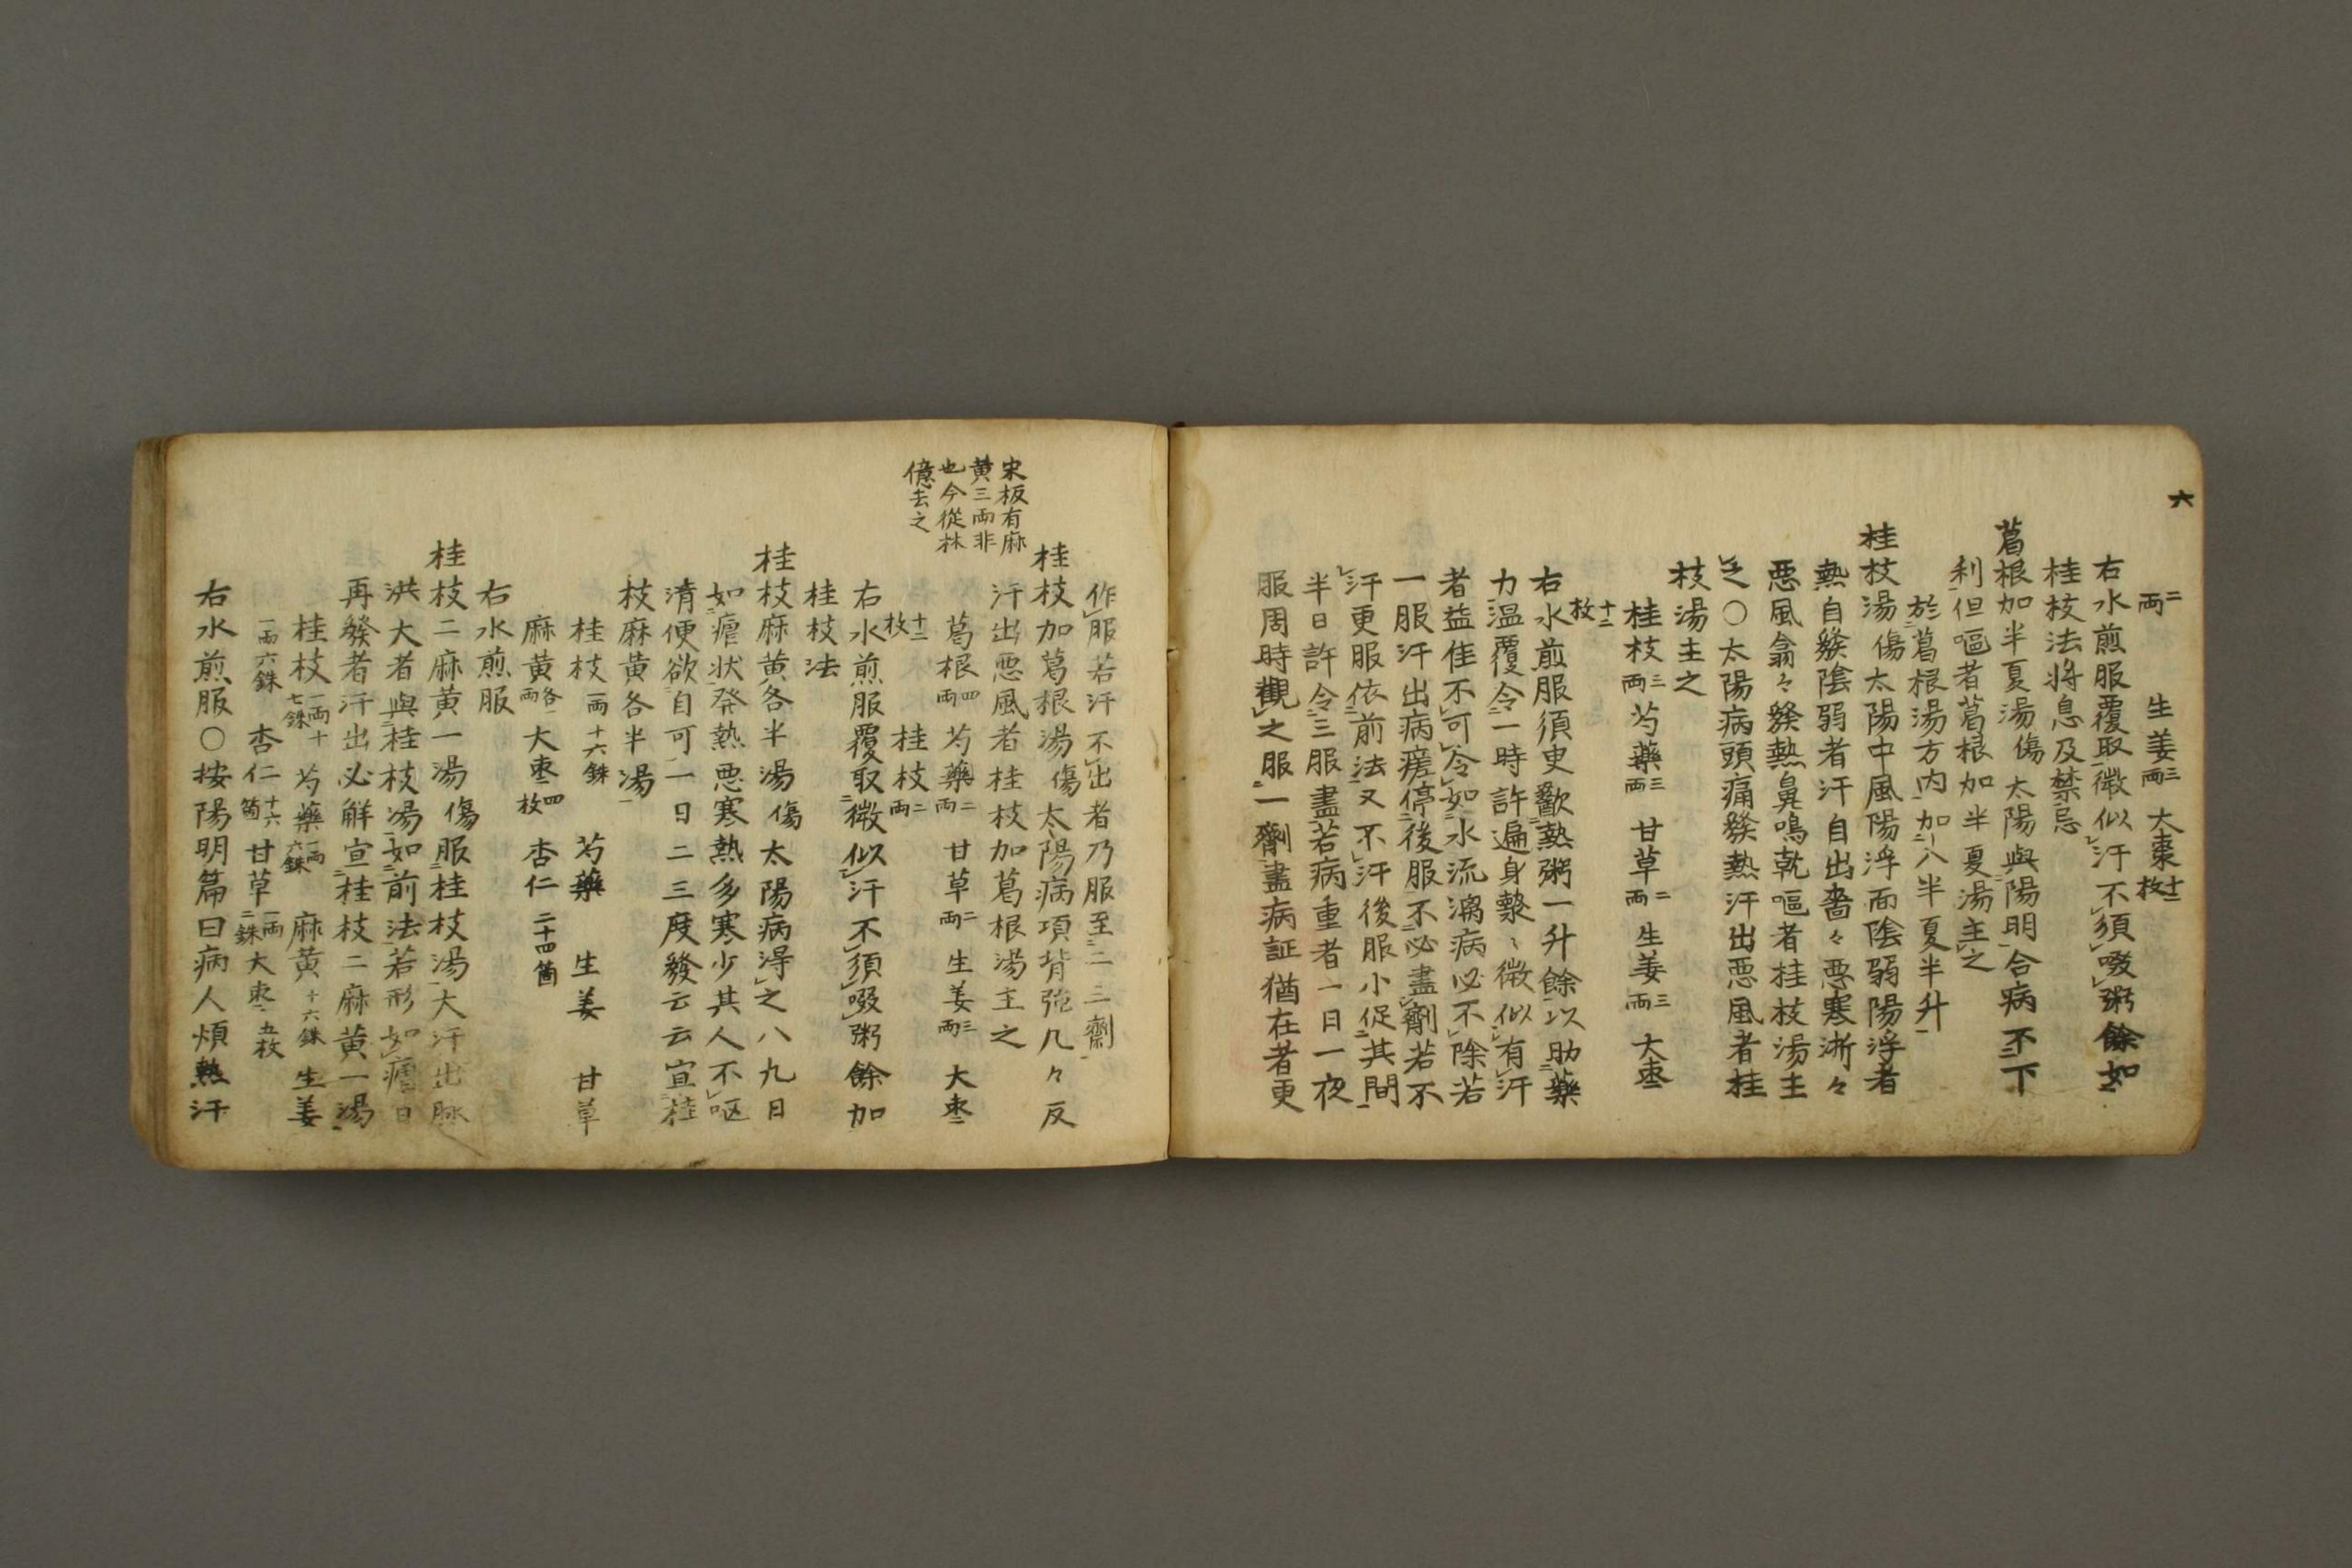 六
二両　生姜三両　大棗十二枚
右水煎服覆取微似汗不須啜粥餘如
桂枝法將息及禁忌
葛根加半夏湯傷　太陽與陽明合病不下
利但嘔者葛根加半夏湯主之
於葛根湯方内加八半夏半升
桂枝湯傷太陽中風陽浮而陰弱陽浮者
熱自發陰弱者汗自出嗇々悪寒淅々
悪風翕々發熱鼻鳴乾嘔者桂枝湯主
之〇太陽病頭痛發熱汗出悪風者桂
枝湯主之
桂枝三両　芍藥三両　甘草二両　生姜三両　大枣
十二枚
右水煎服須臾歠熱粥一升餘以助藥
力温覆令一時許遍身漐ゝ微似有汗
者益佳不可令如水流漓病必不除若
一服汗出病瘥停後服不必盡劑若不
汗更服依前法又不汗後服小促其間
半日許令三服盡若病重者一日一夜
服周時觀之服一劑盡病証猶在者更
作服若汗不出者乃服至二三劑
宋板有麻
黄三両非
也今從林
億去之
桂枝加葛根湯傷太陽病項背強几々反
汗出悪風者桂枝加葛根湯主之
葛根四両　芍藥二両　甘草二両　生姜三両　大枣
十二枚　桂枝二両
右水煎服覆取微似汗不須啜粥餘加
桂枝法
桂枝麻黄各半湯傷太陽病得之八九日
如瘧状発熱悪寒熱多寒少其人不呕
清便欲自可一日二三度發云云宜桂
枝麻黄各半湯
桂枝一両十六銖　芍藥　生姜　甘草
麻黄各一両　大枣四枚　杏仁二十四箇
右水煎服
桂枝二麻黄一湯傷服桂枝湯大汗出脉
洪大者與桂枝湯如前法若形如瘧日
再發者汗出必解宜桂枝二麻黄一湯
桂枝一両十七銖　芍藥一両六銖　麻黄十六銖　生姜
一両六銖　杏仁十六箇　甘草一両二銖　大枣五枚
右水煎服〇按陽明篇曰病人煩熱汗